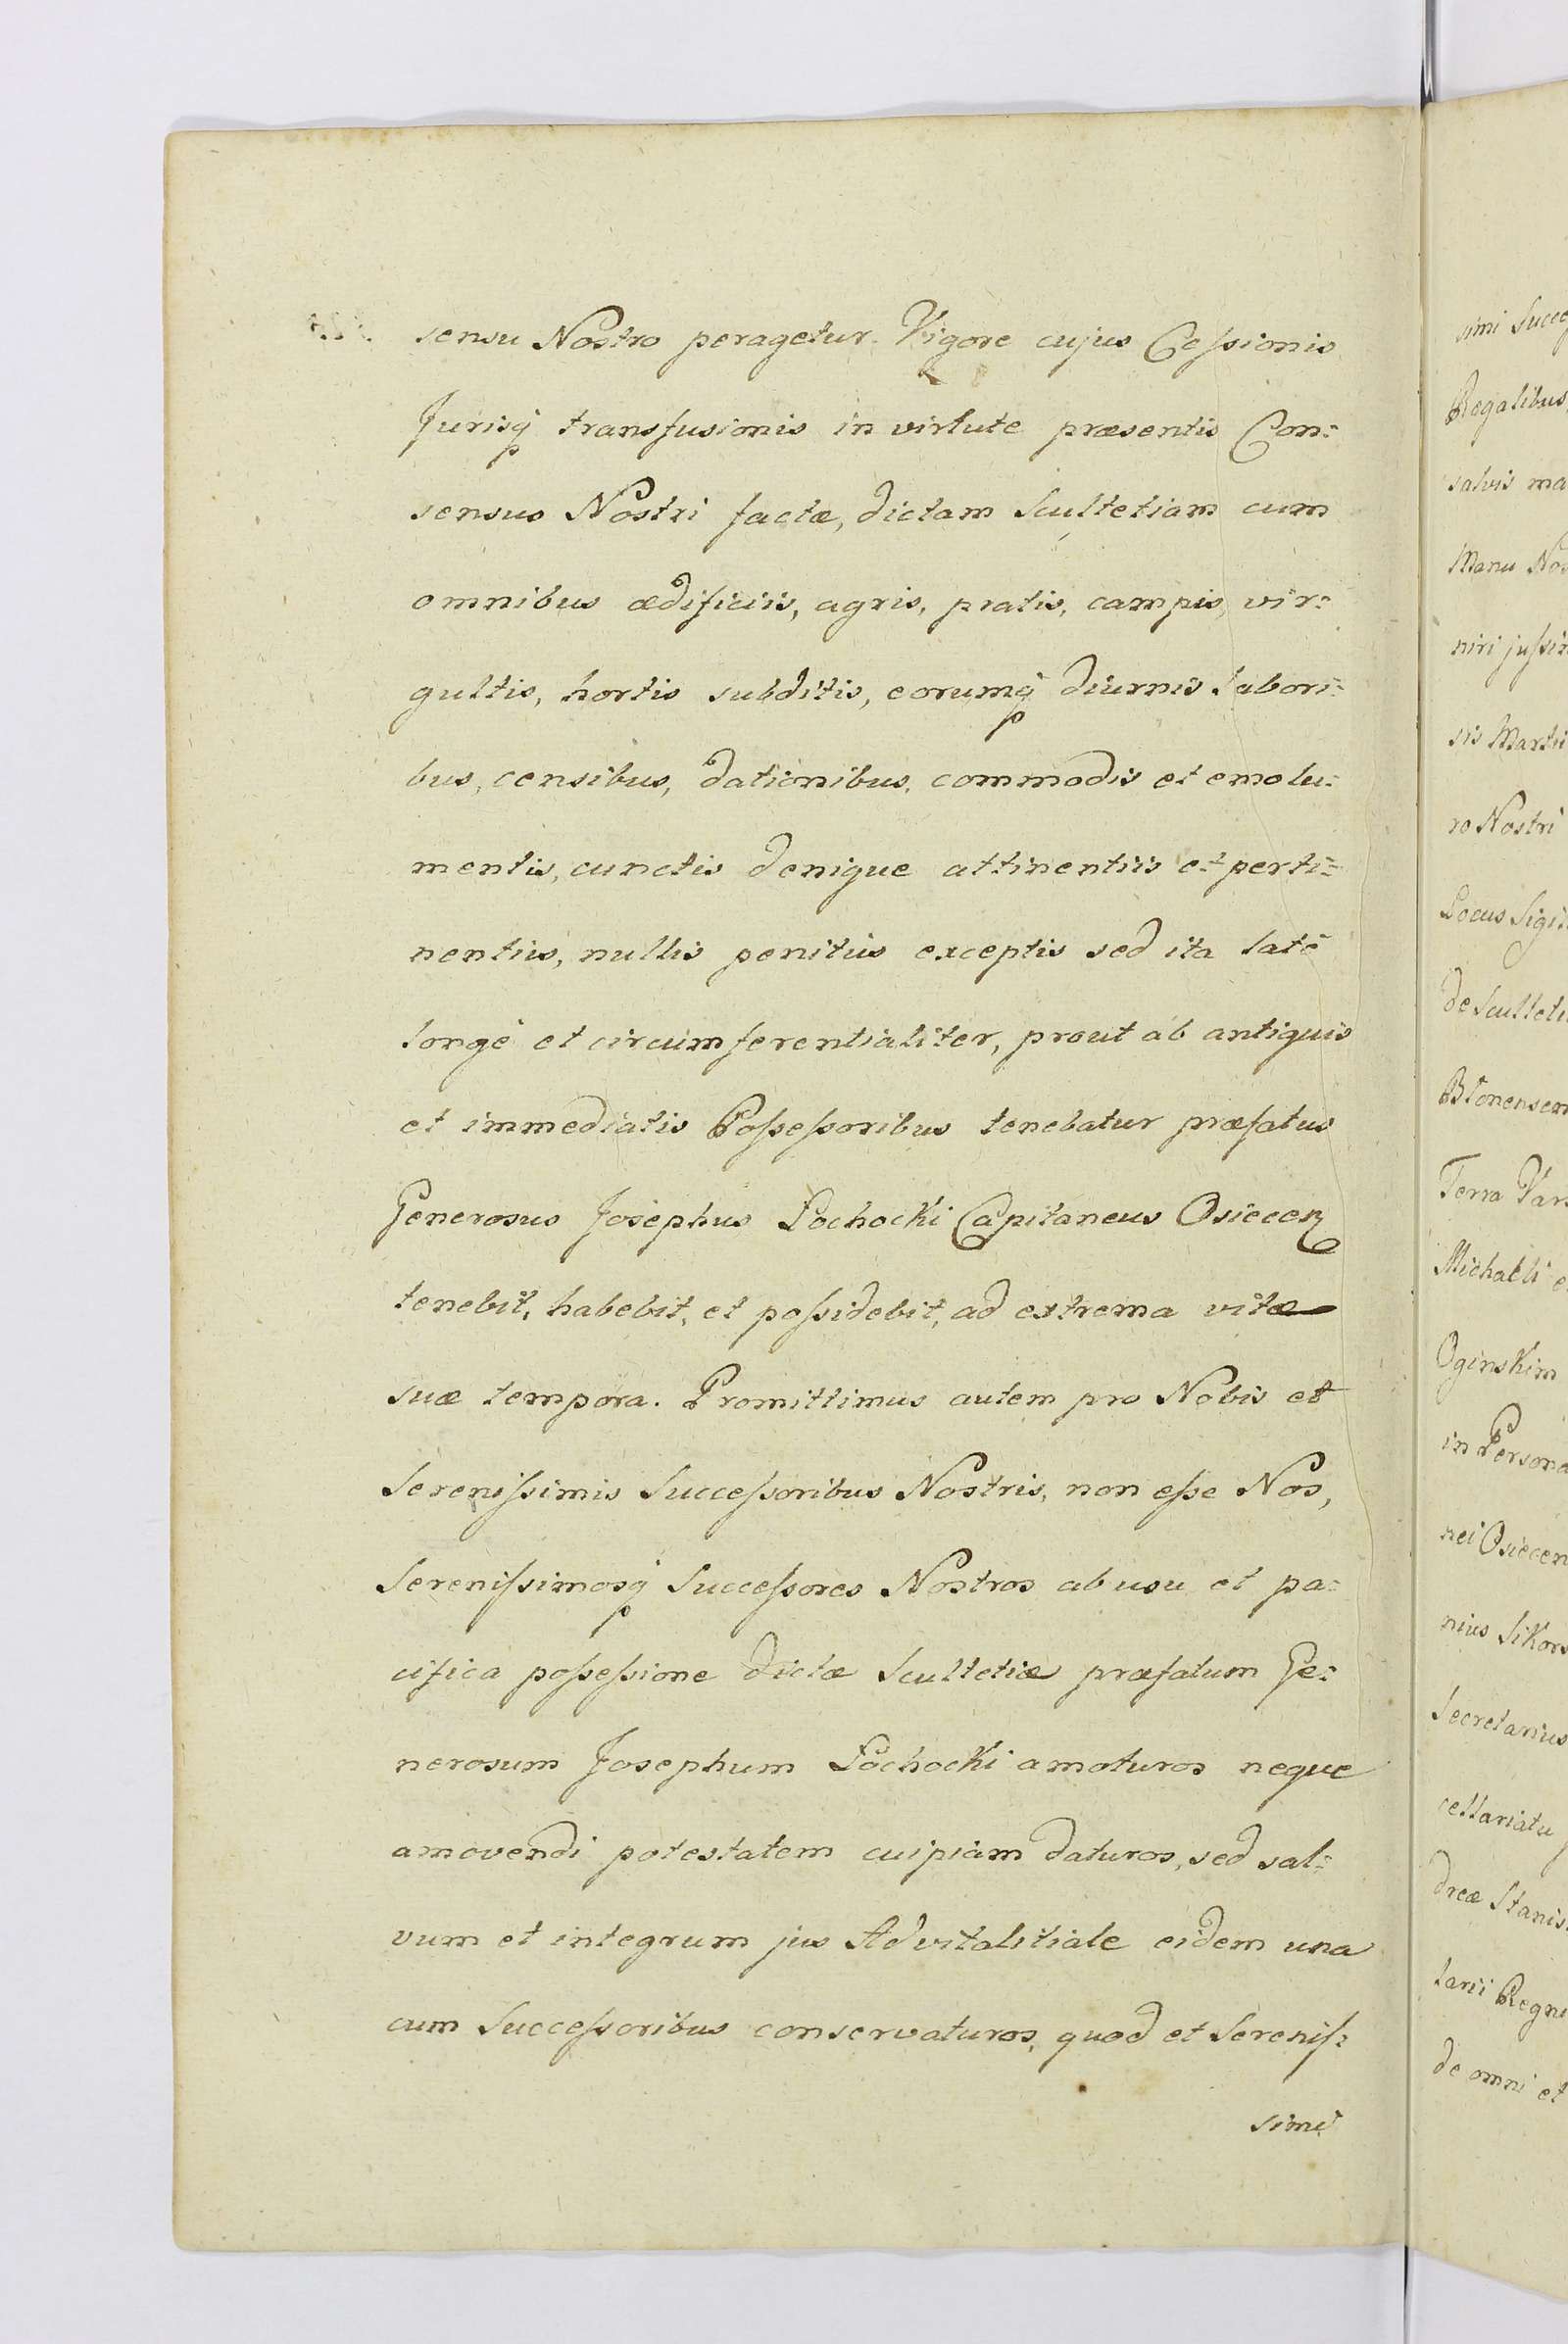 sensu Nostro peragetur. Vigore cujus Cessionis
Jurisq; transfusionis in virtute præsentis Con:
sensus Nostri factæ, dictam Scultetiam cum
omnibus ædificiis, agris, pratis, campis, vir:
gultis, hortis subditis, eorumq; diurnis labori:
bus, censibus, dationibus, commodis et emolu:
mentis, cunctis denique attinentiis et perti:
nentiis, nullis penitus exceptis sed ita latè
longè et circumferentialiter, prout ab antiquis
et immediatis Possessoribus tenebatur præfatus
Generosus Josephus Pochocki Capitaneus Osiecen
tenebit, habebit, et possidebit, ad extrema vitæ
suæ tempora. Promittimus autem pro Nobis et
Serenissimis Successoribus Nostris, non esse Nos,
Serenissimosq; Successores Nostros ab usu et pa:
cifica possessione dictæ Scultetiæ præfatum Ge:
nerosum Josephum Pochocki amoturos neque
amovendi potestatem cuipiam daturos, sed sal:
vum et integrum jus Advitalitiale eidem una
cum Successoribus conservaturos, quod et Sereniss:
simi
simi Succe
Regalibus
salvis ma
Manu Nos
niri jussi
sis Martii
ro Nostri
Locus Sigil
de Sculteti
Blonensem
Terra Vars
Michaeli e
Oginskim
in Persona
nei Osiecen
nius Sikors
Secretarius
cellariatu
dreæ Stanis
larii Regni
de omni et